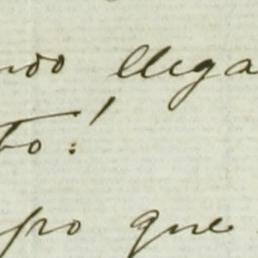 ndo llega
to:!
po que